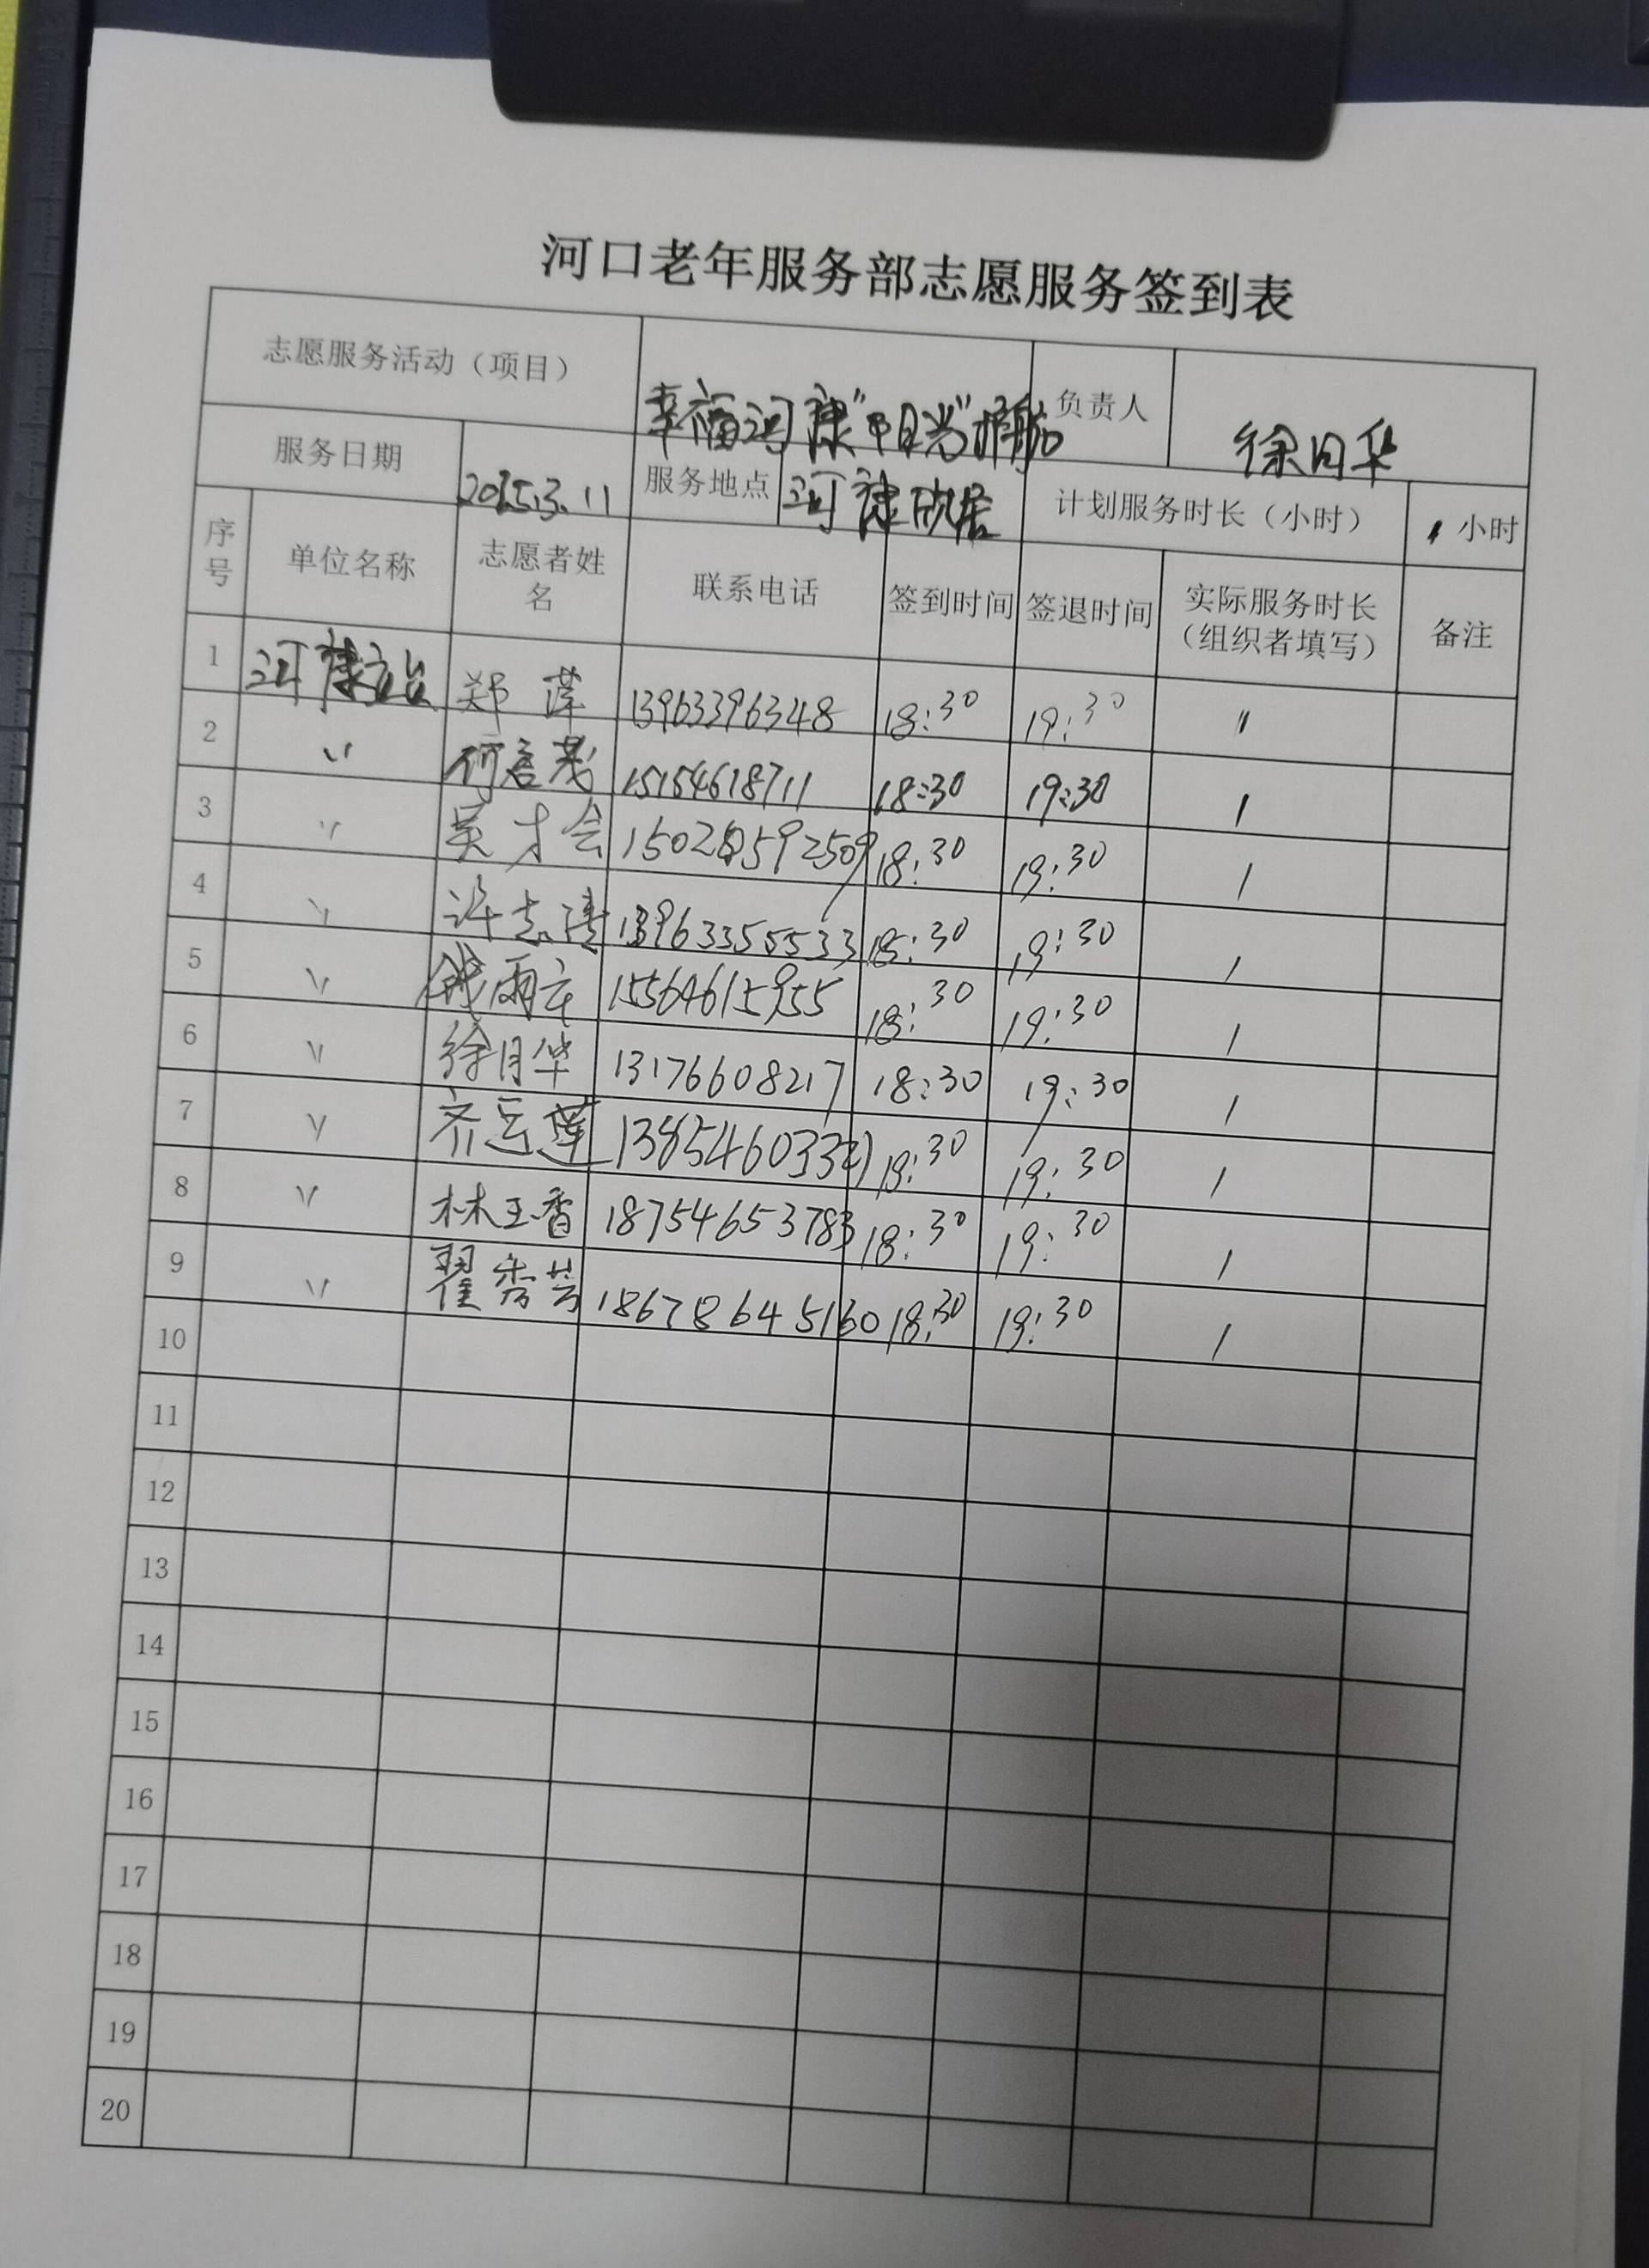 河口老年服务部志愿服务签到表
志愿服务活动（项目） 幸福河康"阳光"护航 负责人 徐月华
服务日期 2025.3.11 服务地点 河康欣居 计划服务时长（小时） 1 小时
序号 单位名称 志愿者姓名 联系电话 签到时间 签退时间 实际服务时长（组织者填写） 备注
1 河康 郑莲 13963396348 18:30 19:30 1
2 〃 何 茂 15154618711 18:30 19:30 1
3 〃 吴才会 18:30 19:30 1
4 〃 许志清 13963355533 18:30 19:30 1
5 〃 钱雨 15564615955 18:30 19:30 1
6 〃 徐月华 13176608217 18:30 19:30 1
7 〃 齐 莲 18:30 19:30 1
8 〃 林玉香 18754653783 18:30 19:30 1
9 〃 翟秀芳 18678645160 18:30 19:30 1
10
11
12
13
14
15
16
17
18
19
20